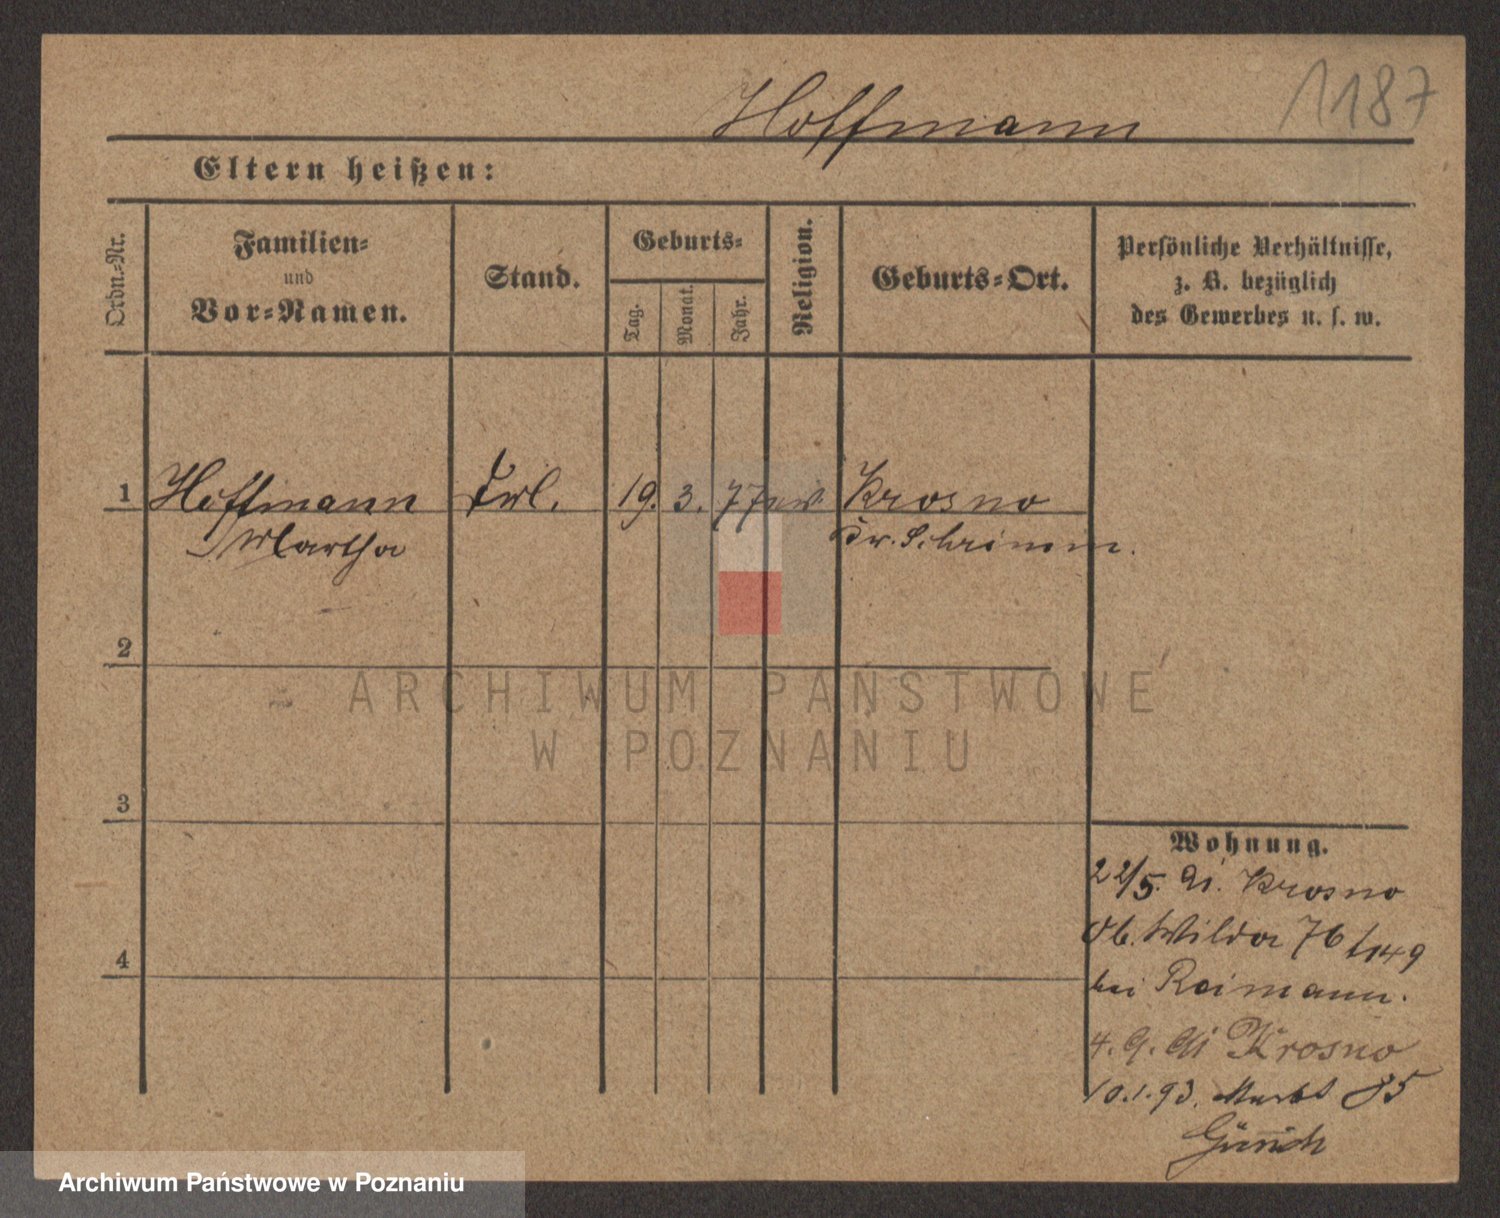 1187
Hoffmann
Eltern heißen:
Ordn.-Nr.
Familien-
und
Vor-Namen.
Stand.
Geburts-
Tag.
Monat.
Jahr.
Religion.
Geburts-Ort.
Persönliche Verhältnisse,
z. B. bezüglich
des Gewerbes u. s. w.
1 Hoffmann Frl. 19. 3. 77 ev. Krosno
Martha Kr. Schrimm.
2
ARCHIWUM PAŃSTWOWE
W POZNANIU
3
Wohnung.
22/5. Krosno
Ob. Wilda 76
4
bei Reimann.
4. 9. Krosno
10.1.93. Markt 85
Archiwum Państwowe w Poznaniu